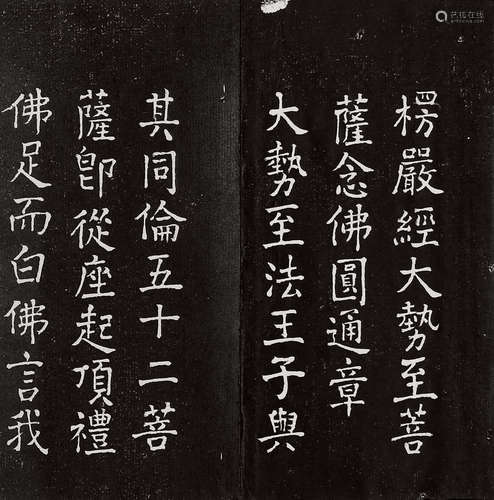 楞嚴經大勢至菩
薩念佛圓通章
大勢至法王子與
其同倫五十二菩
薩即從座起頂禮
佛足而白佛言我